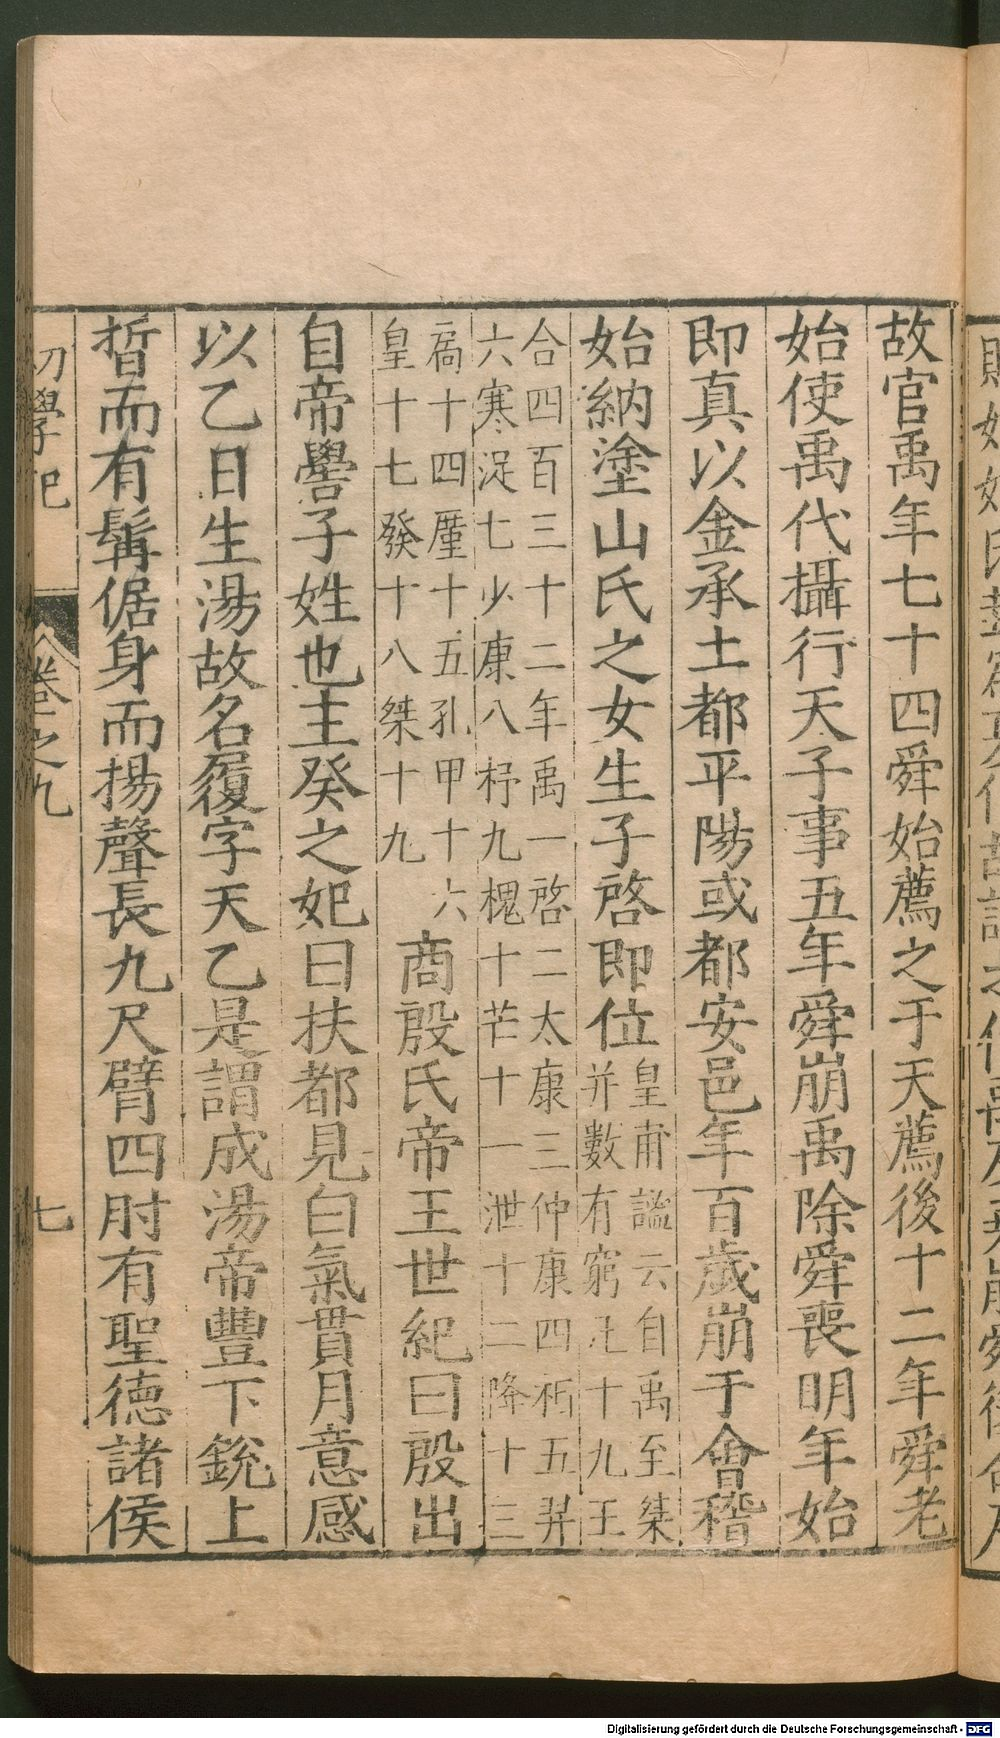 故官禹年七十四舜始薦之于天薦後十二年舜老
始使禹代攝行天子事五年舜崩禹除舜喪明年始
即真以金承土都平陽或都安邑年百歲崩于會稽
始納塗山氏之女生子啓即位
皇甫謐云自禹至桀
并數有窮凡十九王
合四百三十二年禹一啓二太康三仲康四相五羿
六寒浞七少康八杼九槐十芒十一泄十二降十三
扃十四廑十五孔甲十六
皇十七發十八桀十九
商殷氏帝王世紀曰殷出
自帝嚳子姓也主癸之妃曰扶都見白氣貫月意感
以乙日生湯故名履字天乙是謂成湯帝豐下銳上
晳而有髯倨身而揚聲長九尺臂四肘有聖德諸侯
初學記
卷之九
七
Digitalisierung gefördert durch die Deutsche Forschungsgemeinschaft - DFG